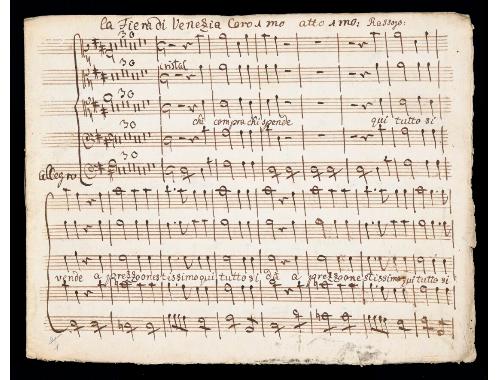 La Fiera di Venezia Coro 1 mo atto 1 mo:
30
30
cristal
30
chi compra chi spende qui tutto si
30
30
Allegro
vende a prezzo onestissimo qui tutto si dà a prezzo onestissimo qui tutto si